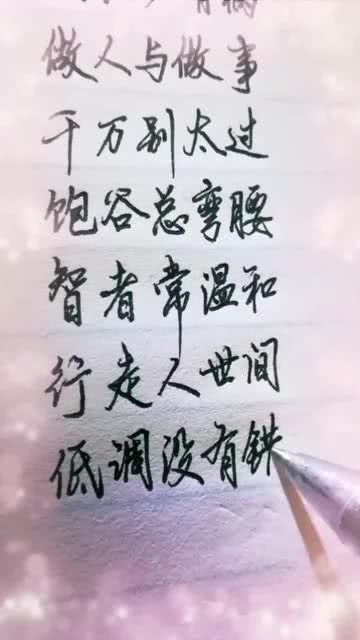 做人与做事
千万别太过
饱谷总弯腰
智者常温和
行走人世间
低调没有错